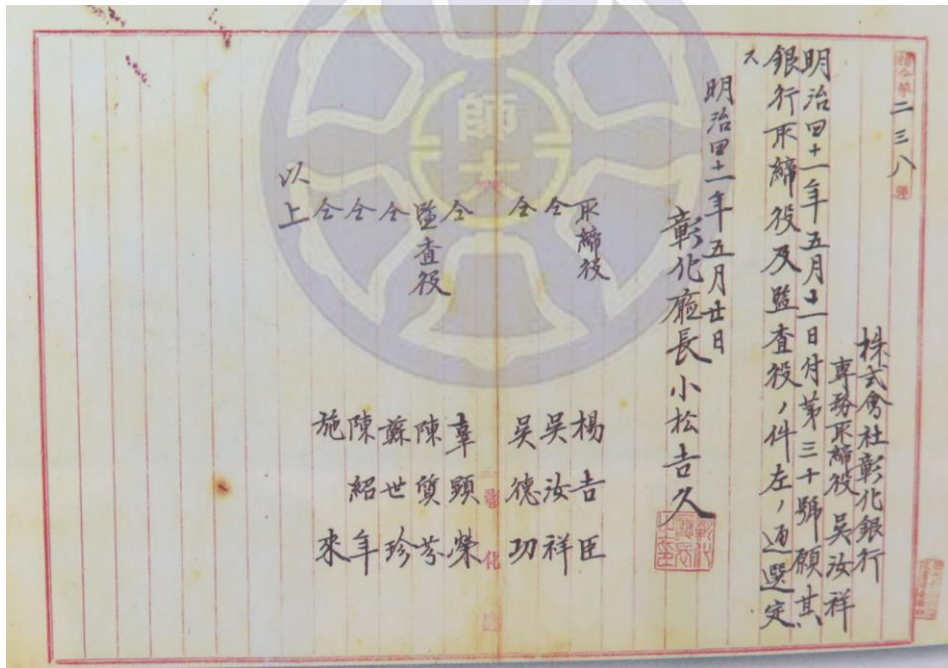 指令第二三八號
株式會社彰化銀行
專務取締役 吳汝祥
明治四十一年五月十一日付第三十號願其
銀行取締役及監查役ノ件左ノ通選定
ス
明治四十一年五月廿日
彰化廳長小松吉久
取締役 楊吉臣
仝 吳汝祥
仝 吳德功
仝 辜顯榮
監查役 陳質芬
仝 蘇世珍
仝 陳紹年
仝 施來
以上
師大
彰化廳